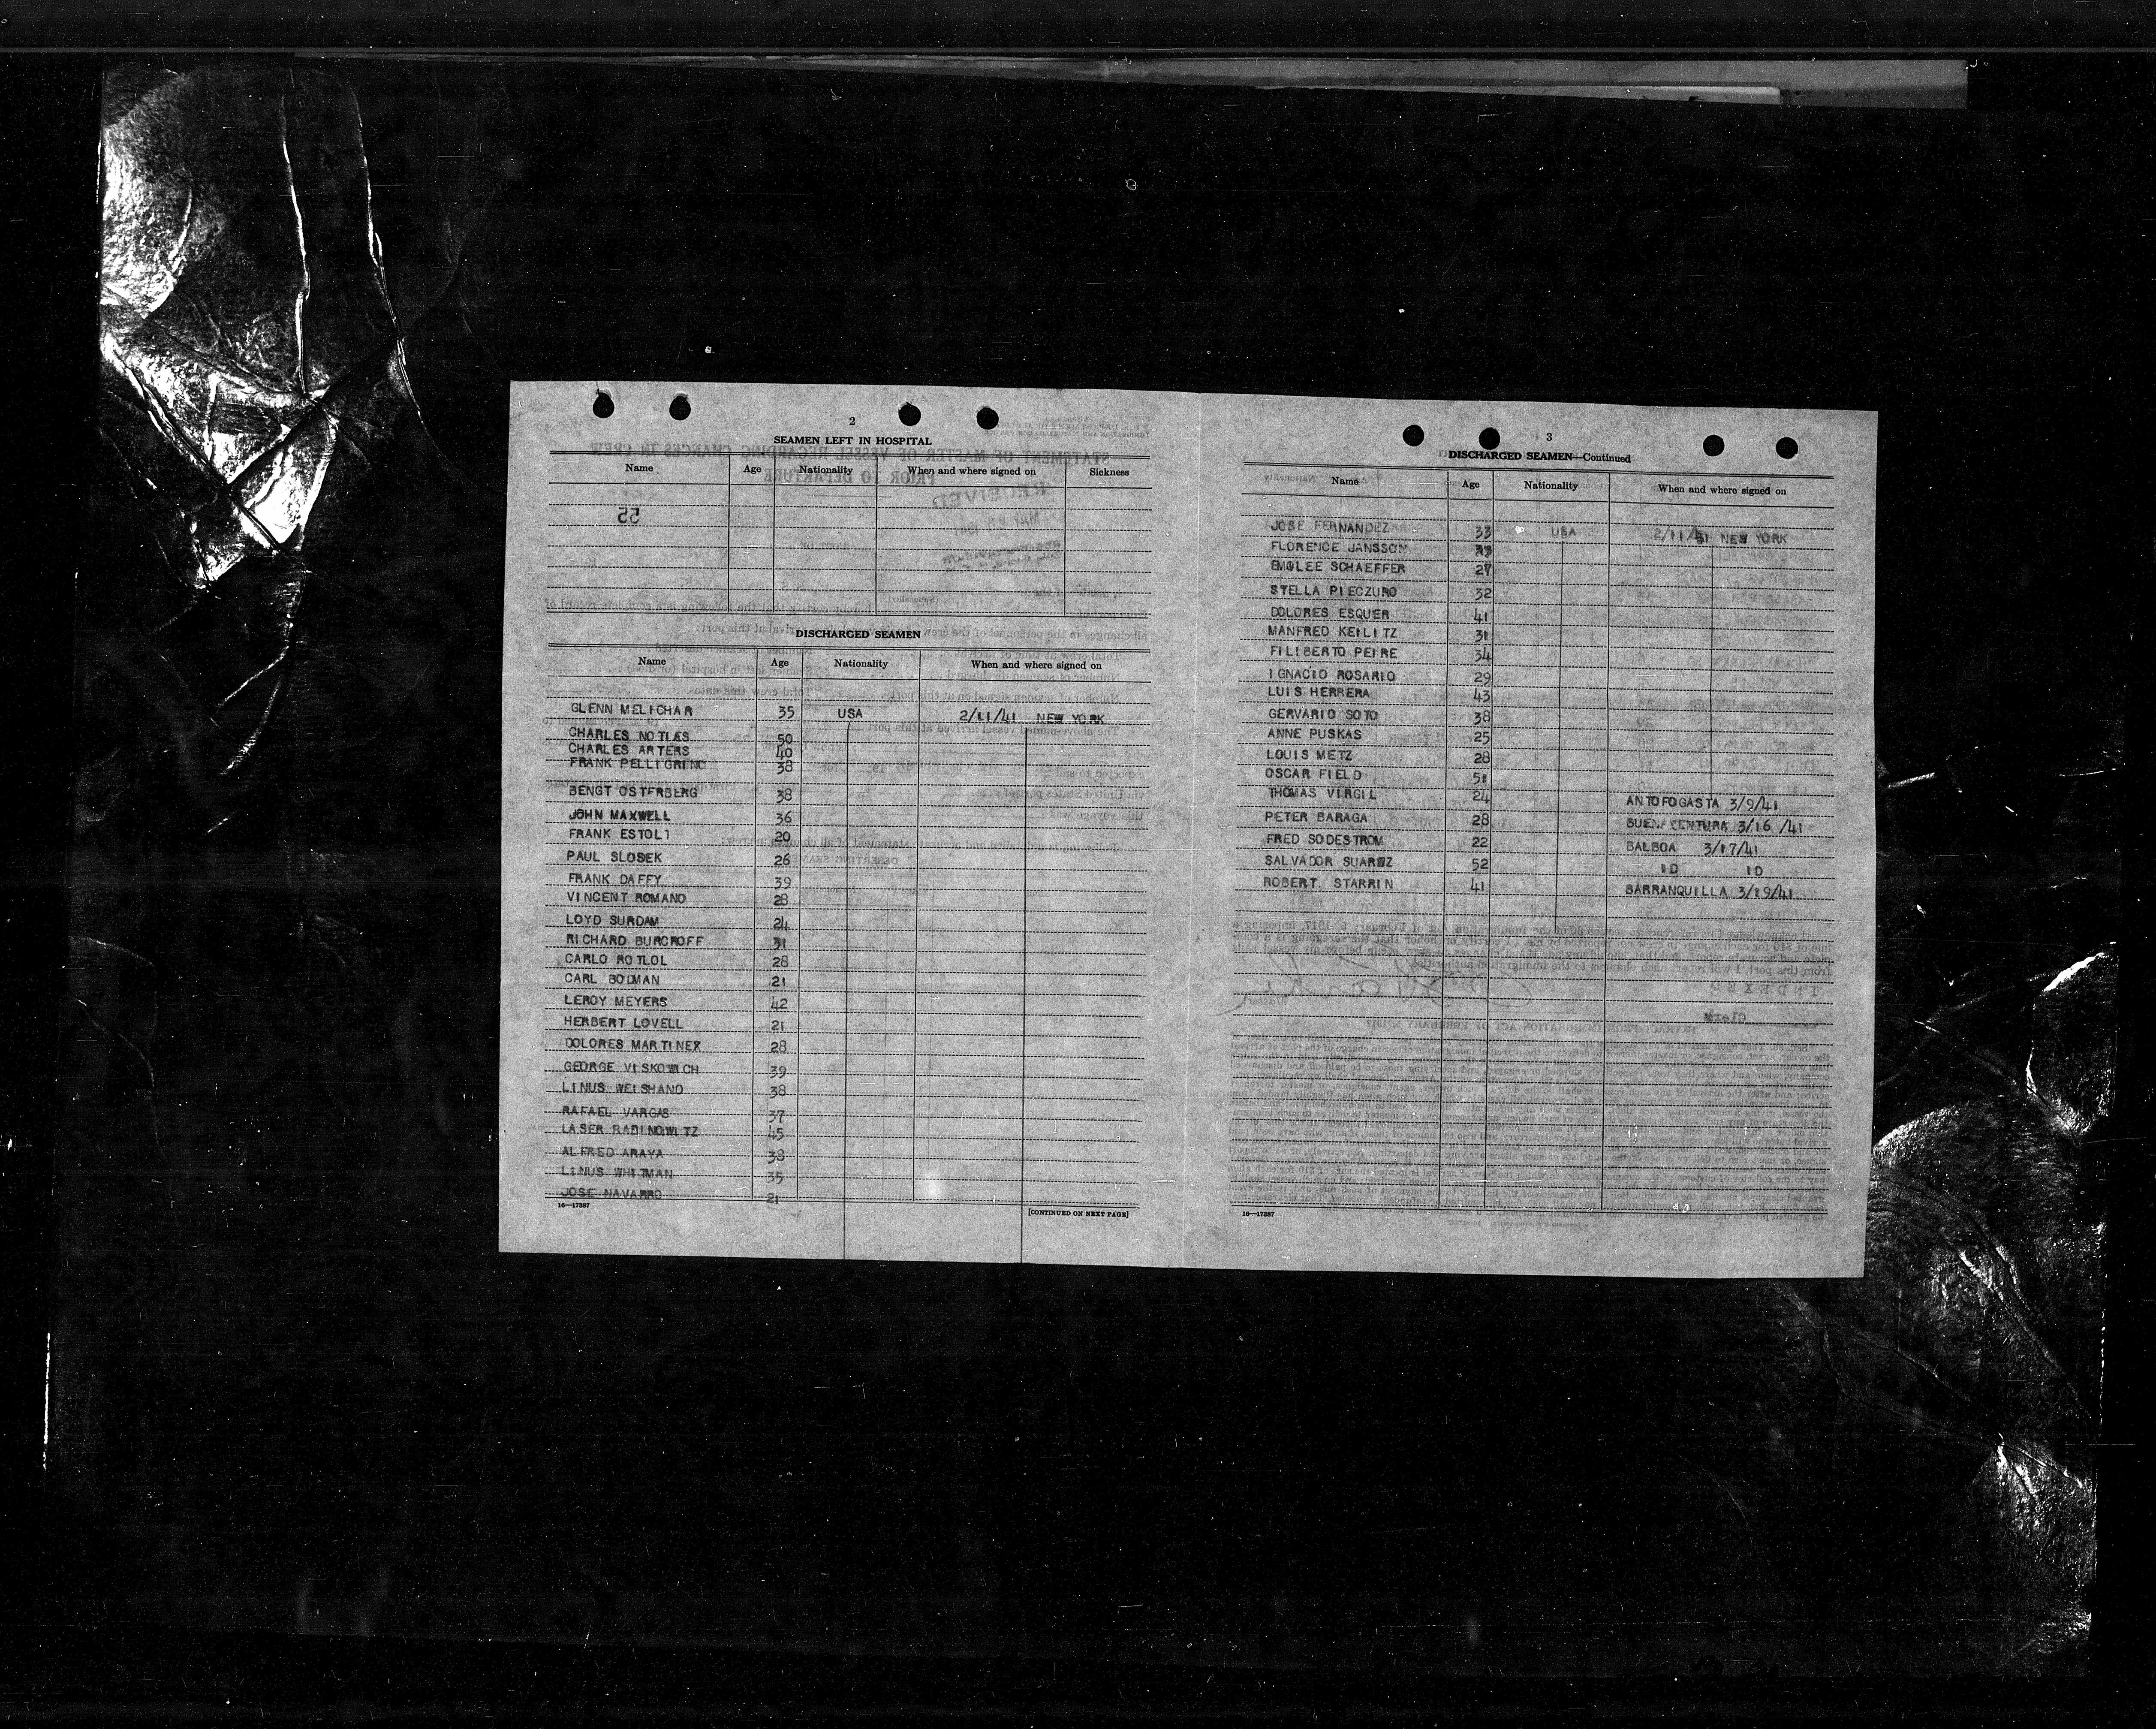 2
SEAMEN LEFT IN HOSPITAL
Name Age Nationality When and where signed on Sickness
DISCHARGED SEAMEN
Name Age Nationality When and where signed on
GLENN MELICHAR 35 USA 2/11/41 NEW YORK
CHARLES NOTLES 50
CHARLES ARTERS 40
FRANK PELLIGRINO 38
BENGT OSTERBERG 38
JOHN MAXWELL 36
FRANK ESTOLI 20
PAUL SLOSEK 26
FRANK DAFFY 39
VINCENT ROMANO 28
LOYD SURDAM 24
RICHARD BURCROFF 31
CARLO ROTLOL 28
CARL BODMAN 21
LEROY MEYERS 42
HERBERT LOVELL 21
DOLORES MARTINEX 28
GEORGE VISKOWICH 39
LINUS WEISHAND 38
RAFAEL VARGAS 37
LASER RADINOWITZ 45
ALFRED ARAYA 38
LINUS WHITMAN 35
JOSE NAVARRO 21
16—17387 [CONTINUED ON NEXT PAGE]
3
DISCHARGED SEAMEN—Continued
Name Age Nationality When and where signed on
JOSE FERNANDEZ 33 USA 2/11/41 NEW YORK
FLORENCE JANSSON
EMGLEE SCHAEFFER 27
STELLA PIECZURO 32
DOLORES ESQUER 41
MANFRED KEILITZ 31
FILIBERTO PEIRE 34
IGNACIO ROSARIO 29
LUIS HERRERA 43
GERVARIO SOTO 38
ANNE PUSKAS 25
LOUIS METZ 28
OSCAR FIELD 51
THOMAS VIRGIL 24 ANTOFOGASTA 3/9/41
PETER BARAGA 28 BUENAVENTURA 3/16/41
FRED SODESTROM 22 BALBOA 3/17/41
SALVADOR SUAREZ 52 ID ID
ROBERT STARRIN 41 BARRANQUILLA 3/19/41
16—17387